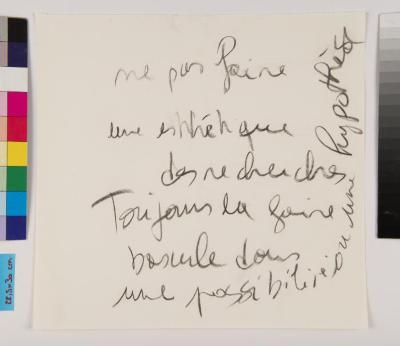 ne pas faire
une esthétique
des recherches
Toujours la faire
bascule dans
une possibilité
ou une hypothèse
28,5 x 30 cm